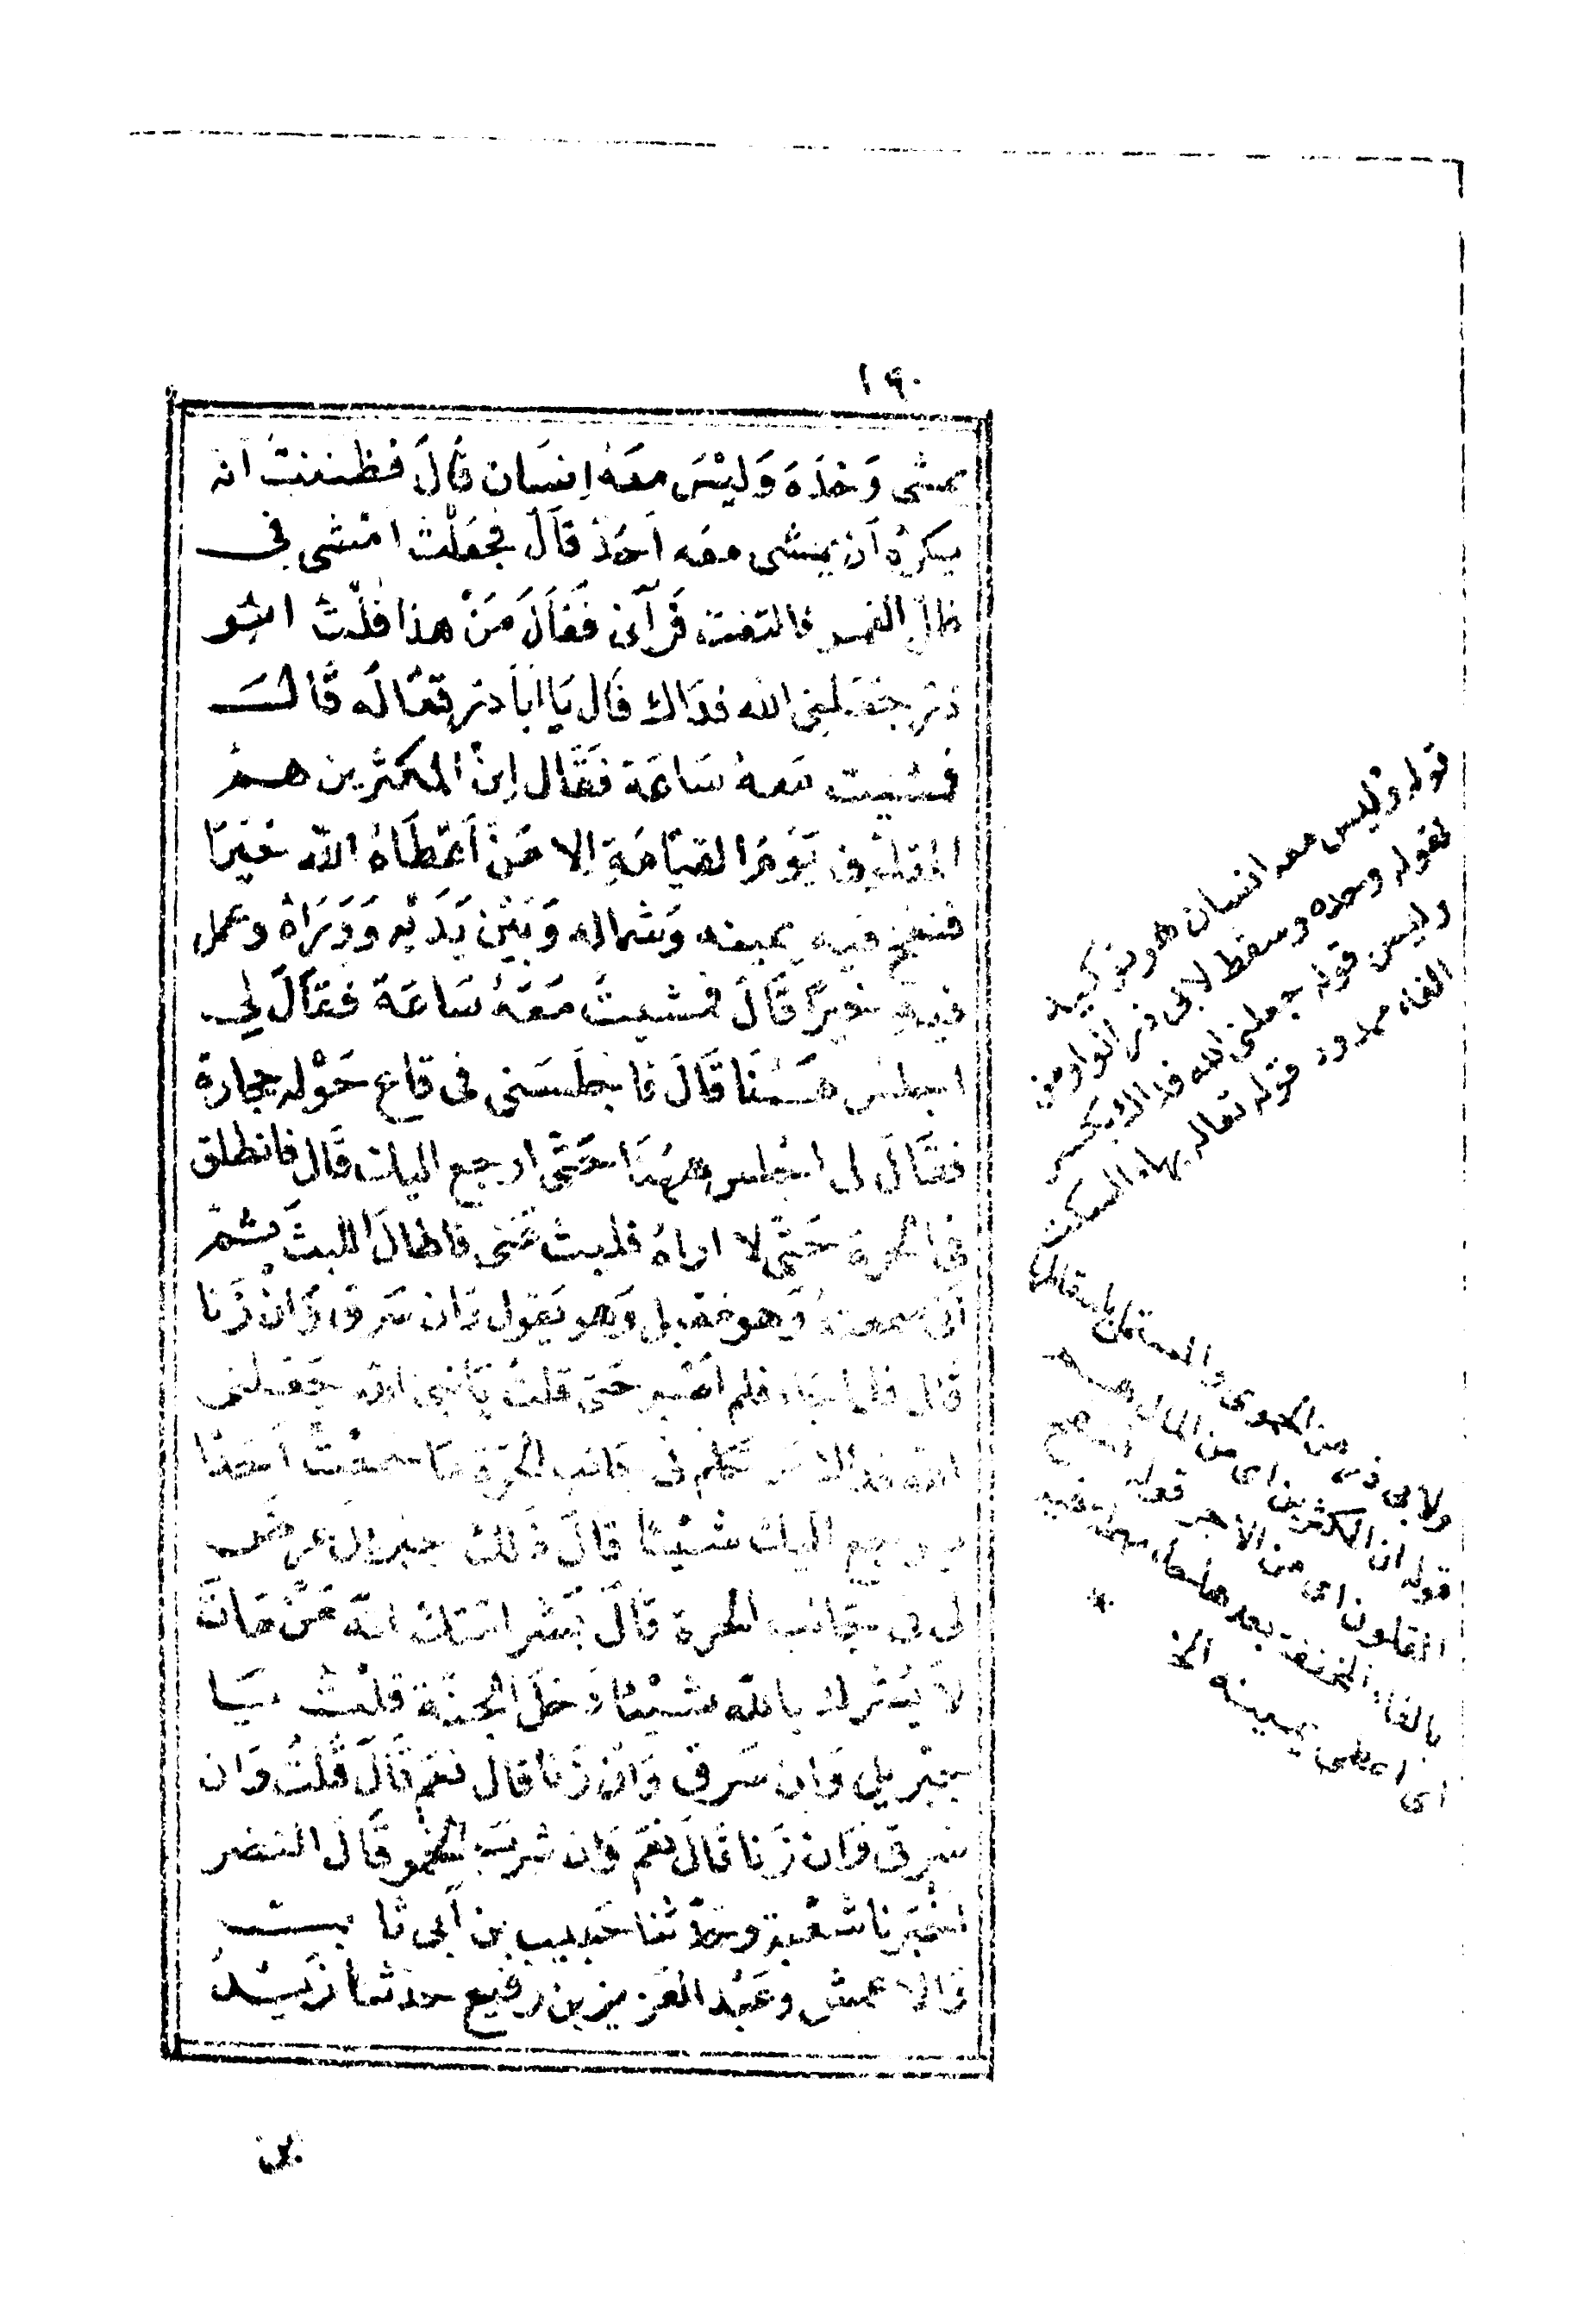 ١٩٠
يمشى وَحْدَهُ وَلَيْسَ مَعَهُ اِنسَان قَالَ فظننتُ انه
يكرهُ اَن يمشى معه اَحَدٌ قَالَ فجعَلْتُ امْشى فى
ظلِّ القمر فالتفت فَرَآنى فَقَالَ مَنْ هذا قلْتُ ابُو
ذر جَعَلَنى الله فدَاك قَال يَا اَبَا ذر تعَالَه قَالَ
فمشيت مَعهُ سَاعَة فَقَال اِنّ المكثرين هُمْ
المقلون يَوْمَ القيَامَةِ الا مَنْ اَعْطَاهُ اللّه خَيْرًا
فنفح فيه يمينه وَشماله وَبَيْنَ يَدَيْه وَوَرَاهُ وعمل
فيهِ خيرًا قَالَ فمشيتُ مَعَهُ سَاعَة فقَالَ لى
اجلس هَهُنَا قَالَ فاجلَسَنى فى قاع حَوْله حجارة
فقَالَ لى اجْلس ههُنَا حَتّى ارجع اليك قَال فانطلق
فى الحرة حَتّى لا اراهُ فلبث عَنى فاطالَ اللبثَ ثمّ
اَنى سمعته وَهو مقبل وَهو يَقول وَان سَرق وَانْ زَنا
قَال فلما جاء فلم اَصْبر حَتى قلتُ يَا نبى الله جَعَلنى
الله فداك من تكلم فى جَانب الحرَّة مَا سَمعْتُ اَحَدًا
يرجع اليك شَيْئا قالَ ذَلك جبريل عرضَ
لى فى جَانب الحرة قَالَ بَشر امّتك انّه مَنْ مَاتَ
لاَ يُشْرك بالله شَيْئا دَخلَ الجنَّة قلْتُ يَا
جبْريل وَان سَرق وَانْ زَنا قال نعَم قَالَ قُلْتُ وَان
سَرق وَان زَنا قَالَ نعَمْ وَان شَربَ الخمر قَالَ النضر
اخْبَرنا شعْبة وحدّثنا حَبيب بن اَبى ثابت
وَالاعمش وعَبْد العَزيز بن رفيع حدثنا زَيْدُ
بن
قوله وليس معه انسان هو توكيد
لقوله وحده وسقط لابى ذر الواو من
وليس قوله جعلنى الله فداك بكسر
الفاء ممدود قوله تعاله بهاء السكت
ولابى ذر عن الحموى والمستملى تعال
قوله ان المكثرين اى من المال هم
المقلون اى من الأجر قوله فنفح
بالفاء المخففة بعدها حاء مهملة
اى اعطى يمينه الخ